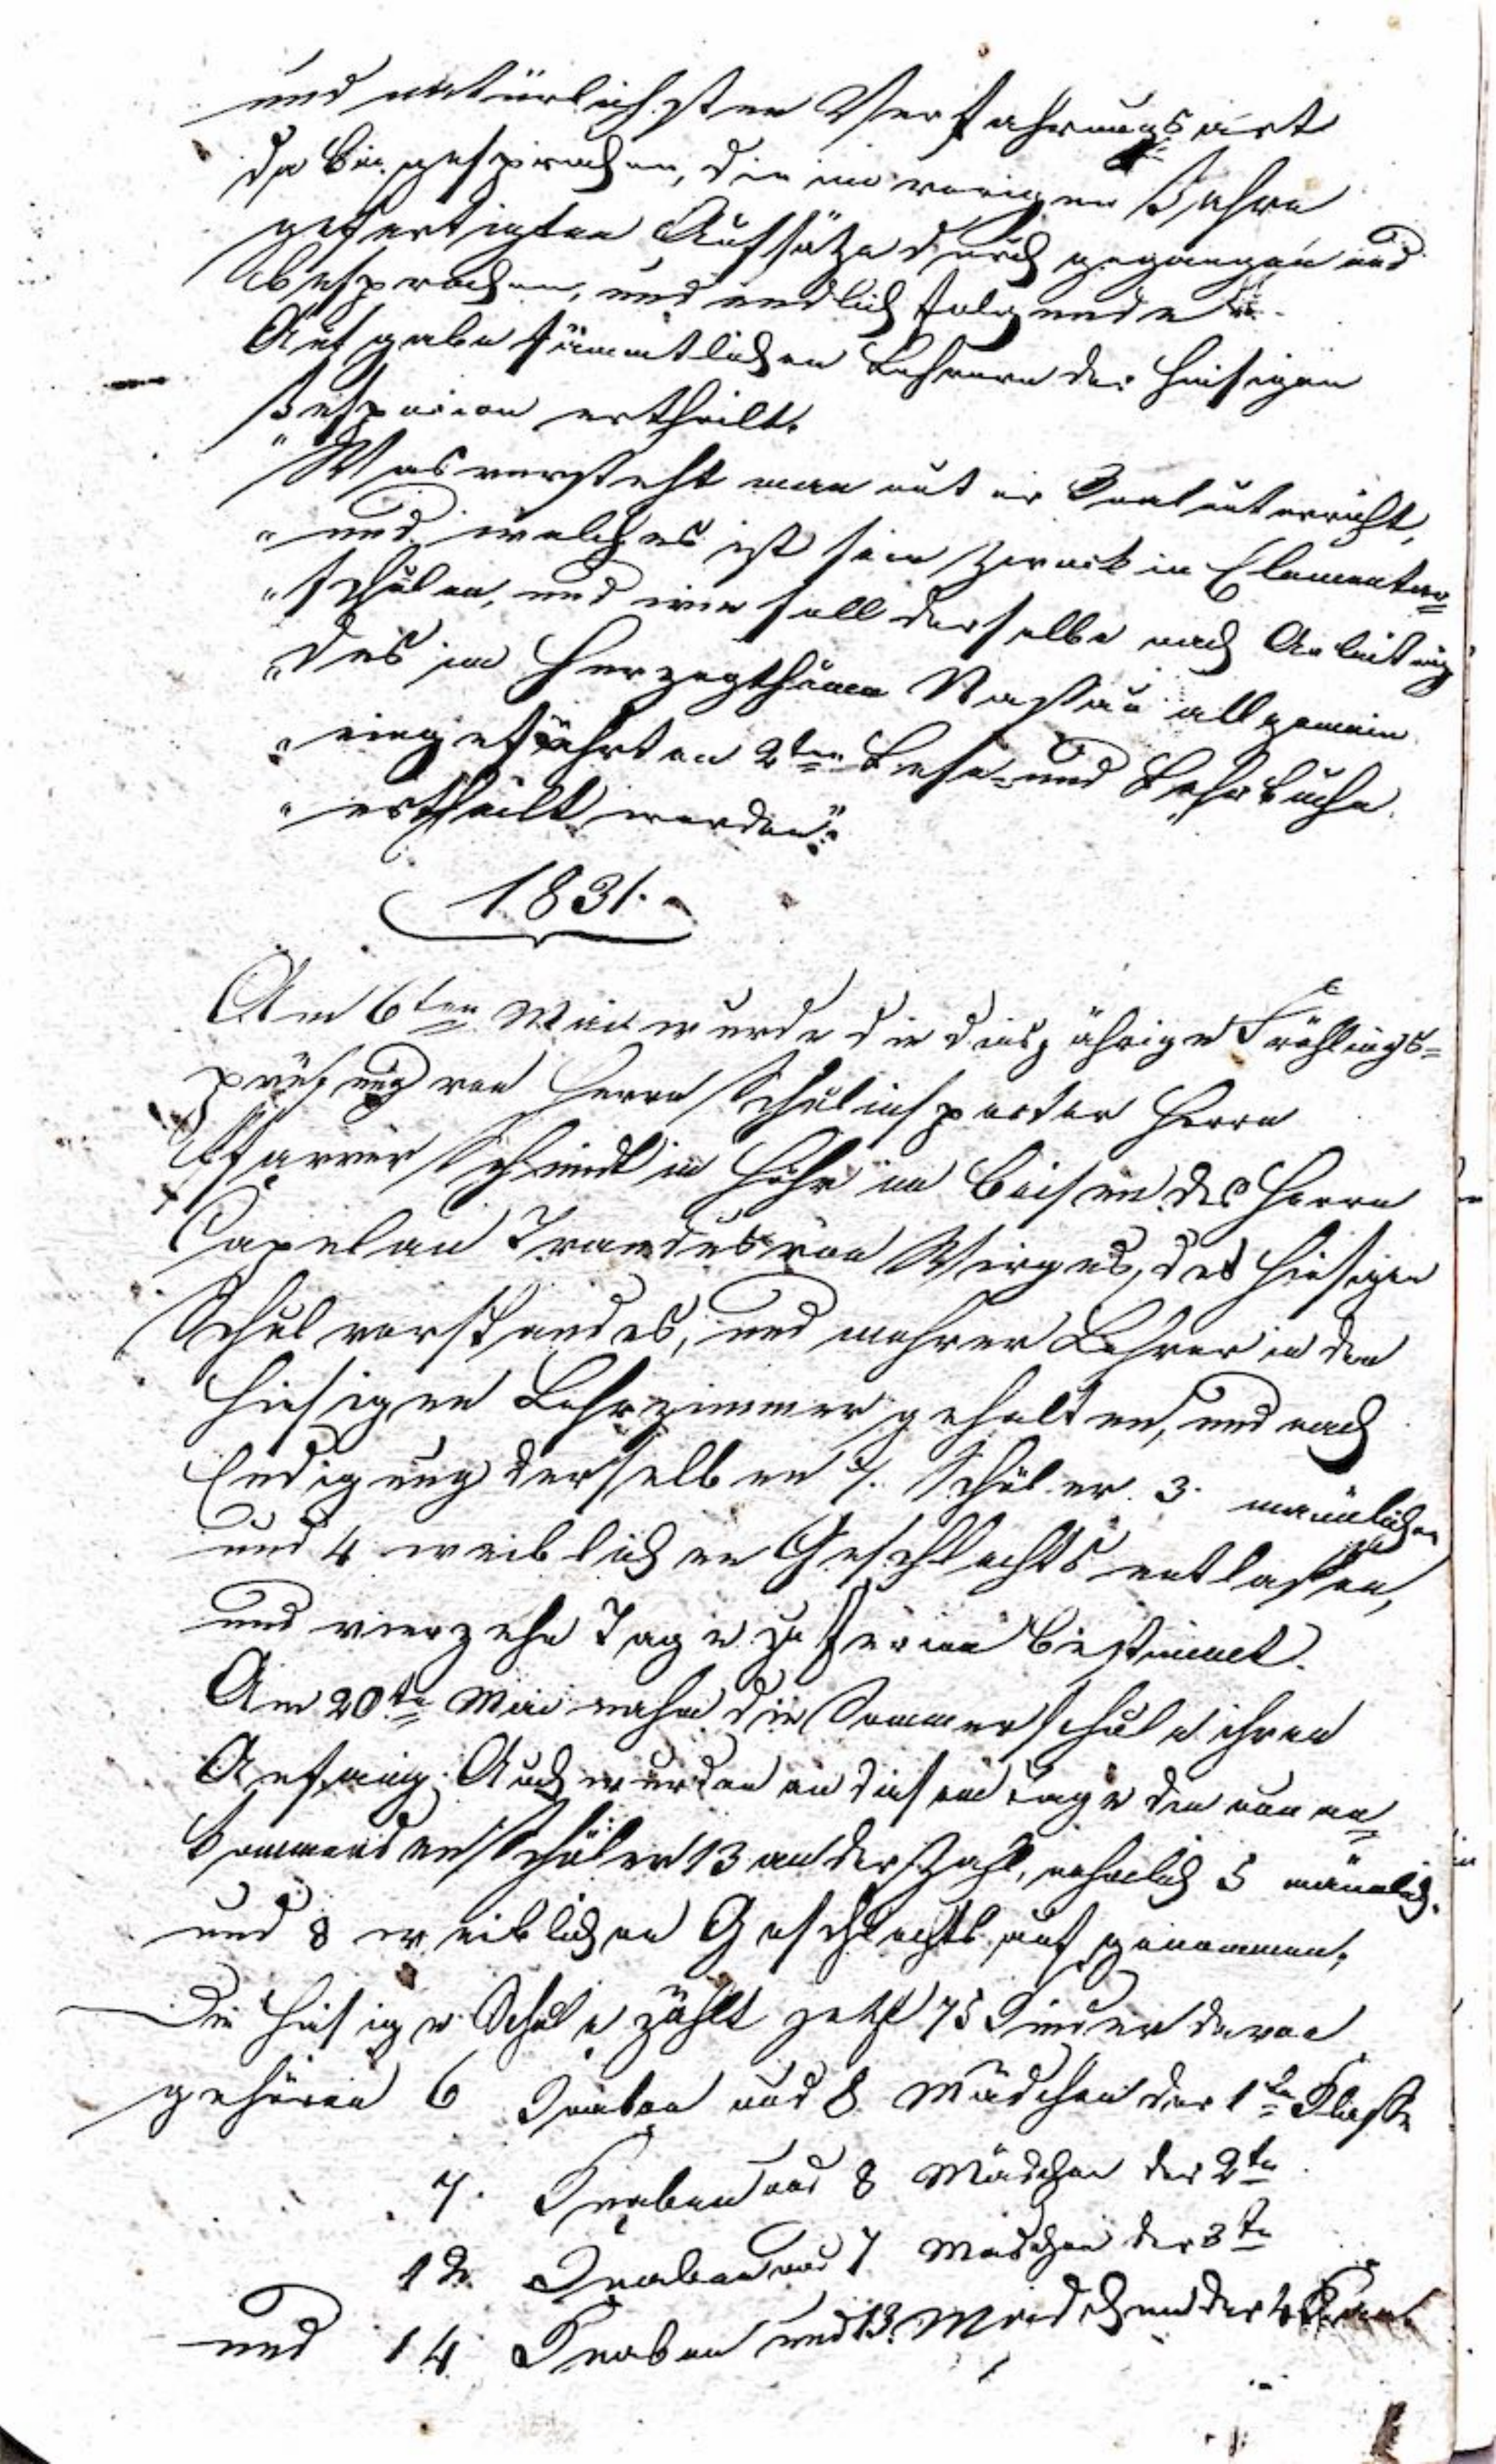 und natürlichsten Verfahrungsart
da bei gesprochen, die im vorigen Jahre
gefertigten Aufsätze durch gegangen und
besprochen, und endlich folgende
Aufgabe sämmtlichen Lehrern der hiesigen
Inspecion ertheilt.
"Was versteht man unter Realunterricht,
"und welches ist sein Zweck in Elementar=
"schulen, und wie soll derselbe nach Anleitung
"des im Herzogthume Nassau allgemein
"eingeführten 2ten Lese= und Lehrbuche
"ertheilt werden".
1831.
Am 6ten Mai wurde die diesjährige Frühlings=
prüfung von Herrn Schulinspector Herrn
Pfarrer Schmidt in Höhr im Beisein des Herrn
Capelan von Wirges, des hiesigen
Schulvorstandes, und mehrer Lehrer in dem
hiesigen Lehrzimmer gehalten, und nach
Endigung derselben 7. Schüler 3. mänlichen
und 4 weiblichen Geschlechts entlassen,
und vierzehn Tage zu Ferien bestimmt.
Am 20ten Mai nahm die Sommerschule ihren
Anfang. Auch wurden an diesem Tage die neu an=
kommenden Schüler 13 an der Zahl, nehmlich 5 mänlich.
und 8 weiblichen Geschlechts auf genommen.
Die hiesige Schule zählt jetzt 75 Kinder davon
gehören 6 Knaben und 8 Mädchen der 1ten Klasse
7. Knaben und 8 Mädchen der 2ten
12 Knaben und 7 Mädchen der 3ten
und 14 Knaben und 13. Mädchen der 4